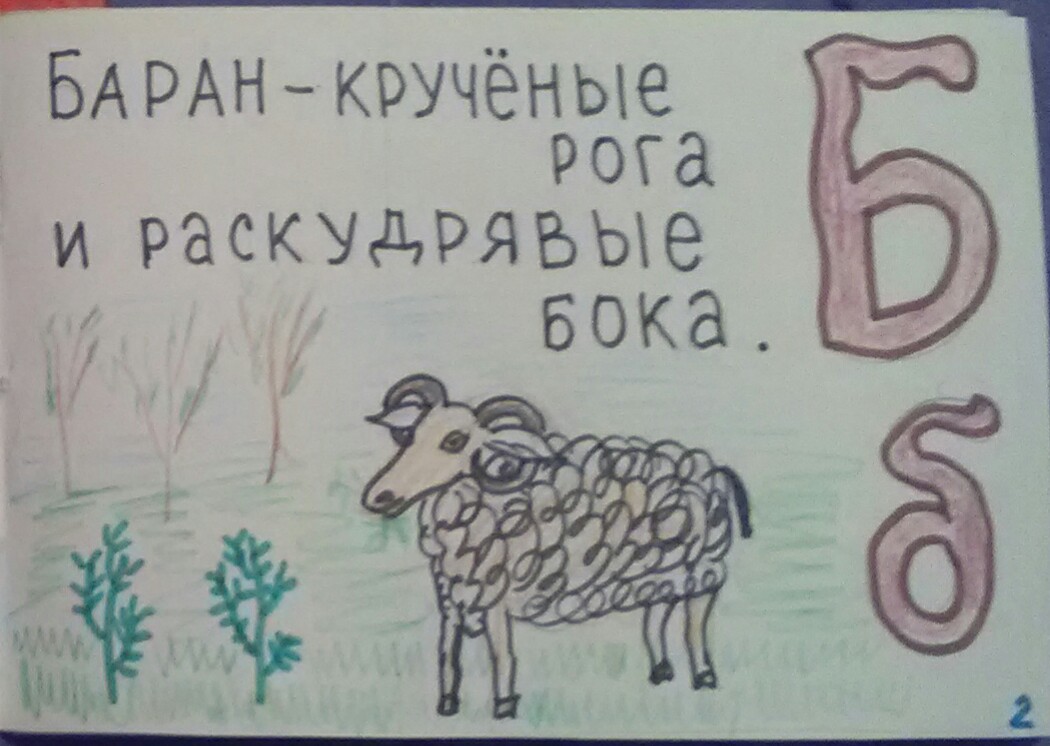 БАРАН-КРУЧЁНЫЕ
РОГА
И РАСКУДРЯВЫЕ
БОКА.
Б
б
2